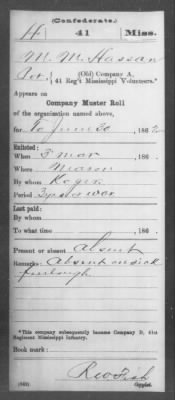 (Confederate.)
H 41 Miss.
M. M. Hassan
Pvt. (Old) Company A,
41 Reg't Mississippi Volunteers.*
Appears on
Company Muster Roll
of the organization named above,
for To June 30, 1862.
Enlisted:
When 8 Mar, 186 .
Where Macon
By whom Rogers
Period 3 yrs or war
Last paid:
By whom
To what time , 186 .
Present or absent Absent
Remarks: Absent on sick
furlough
*This company subsequently became Company D, 41st
Regiment Mississippi Infantry.
Book mark:
(642) Copyist.